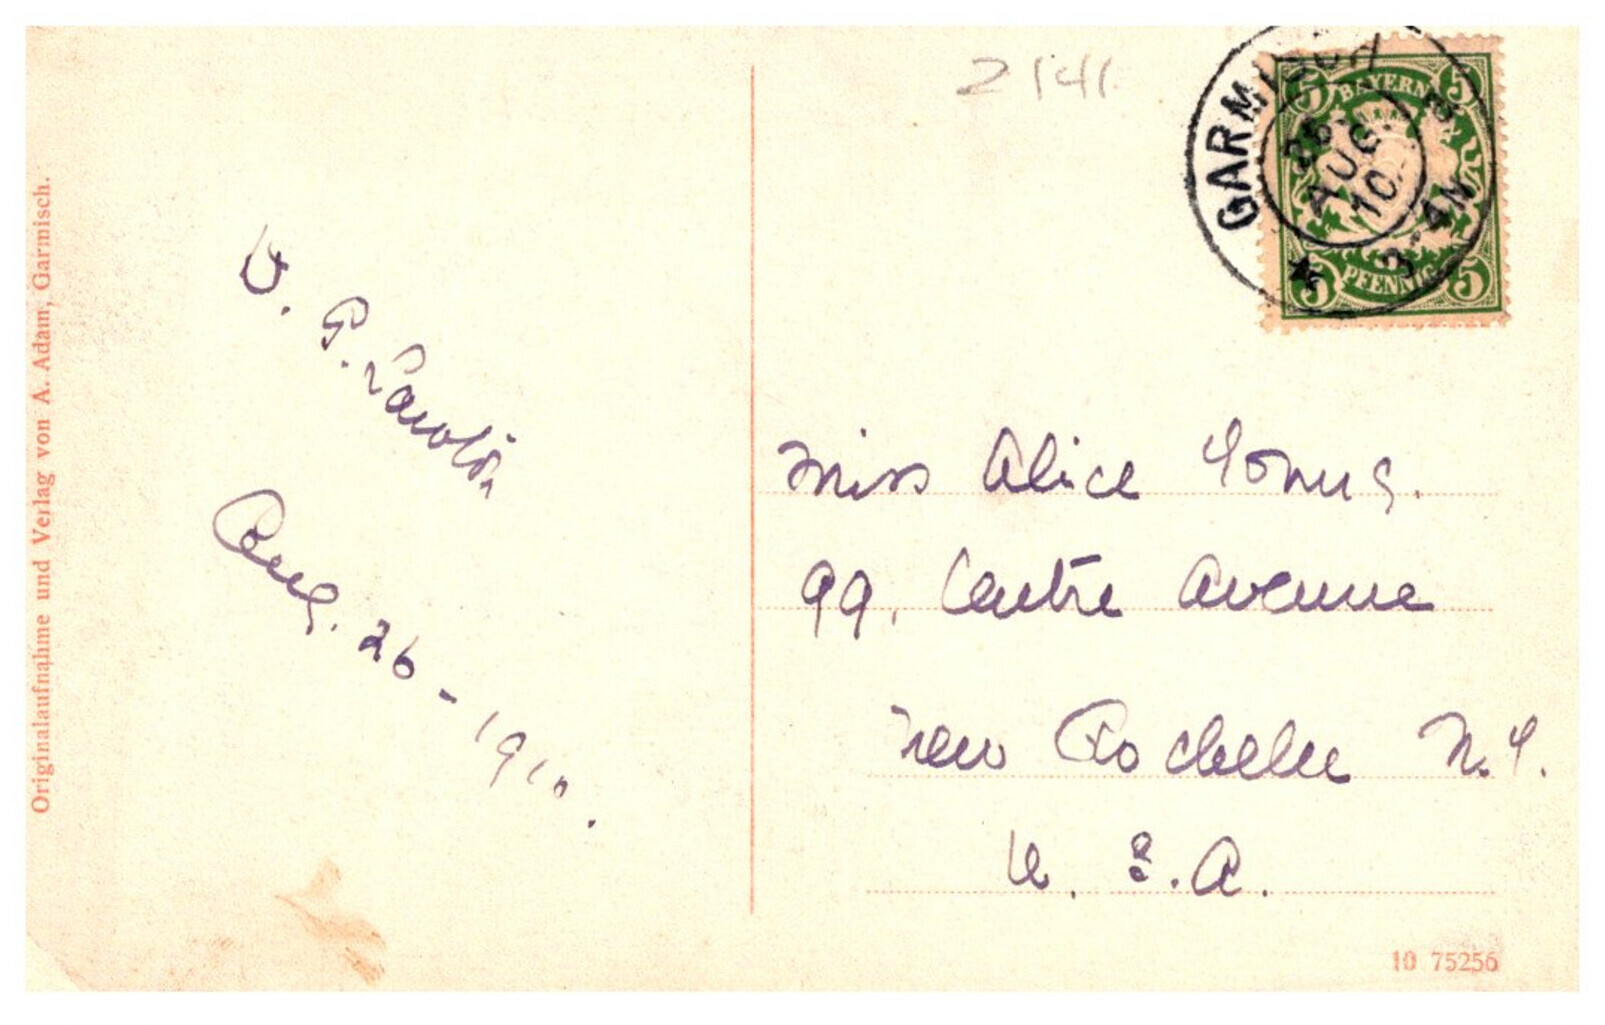 2141
GARMISCH
26.
AUG.
10.
3-4N
5 BAYERN 5
5 PFENNIG 5
Originalaufnahme und Verlag von A. Adam, Garmisch.
P. Lawton
Aug. 26 - 1910.
Miss Alice Young.
99, Centre Avenue
New Rochelle N.Y.
U.S.A.
10 75256